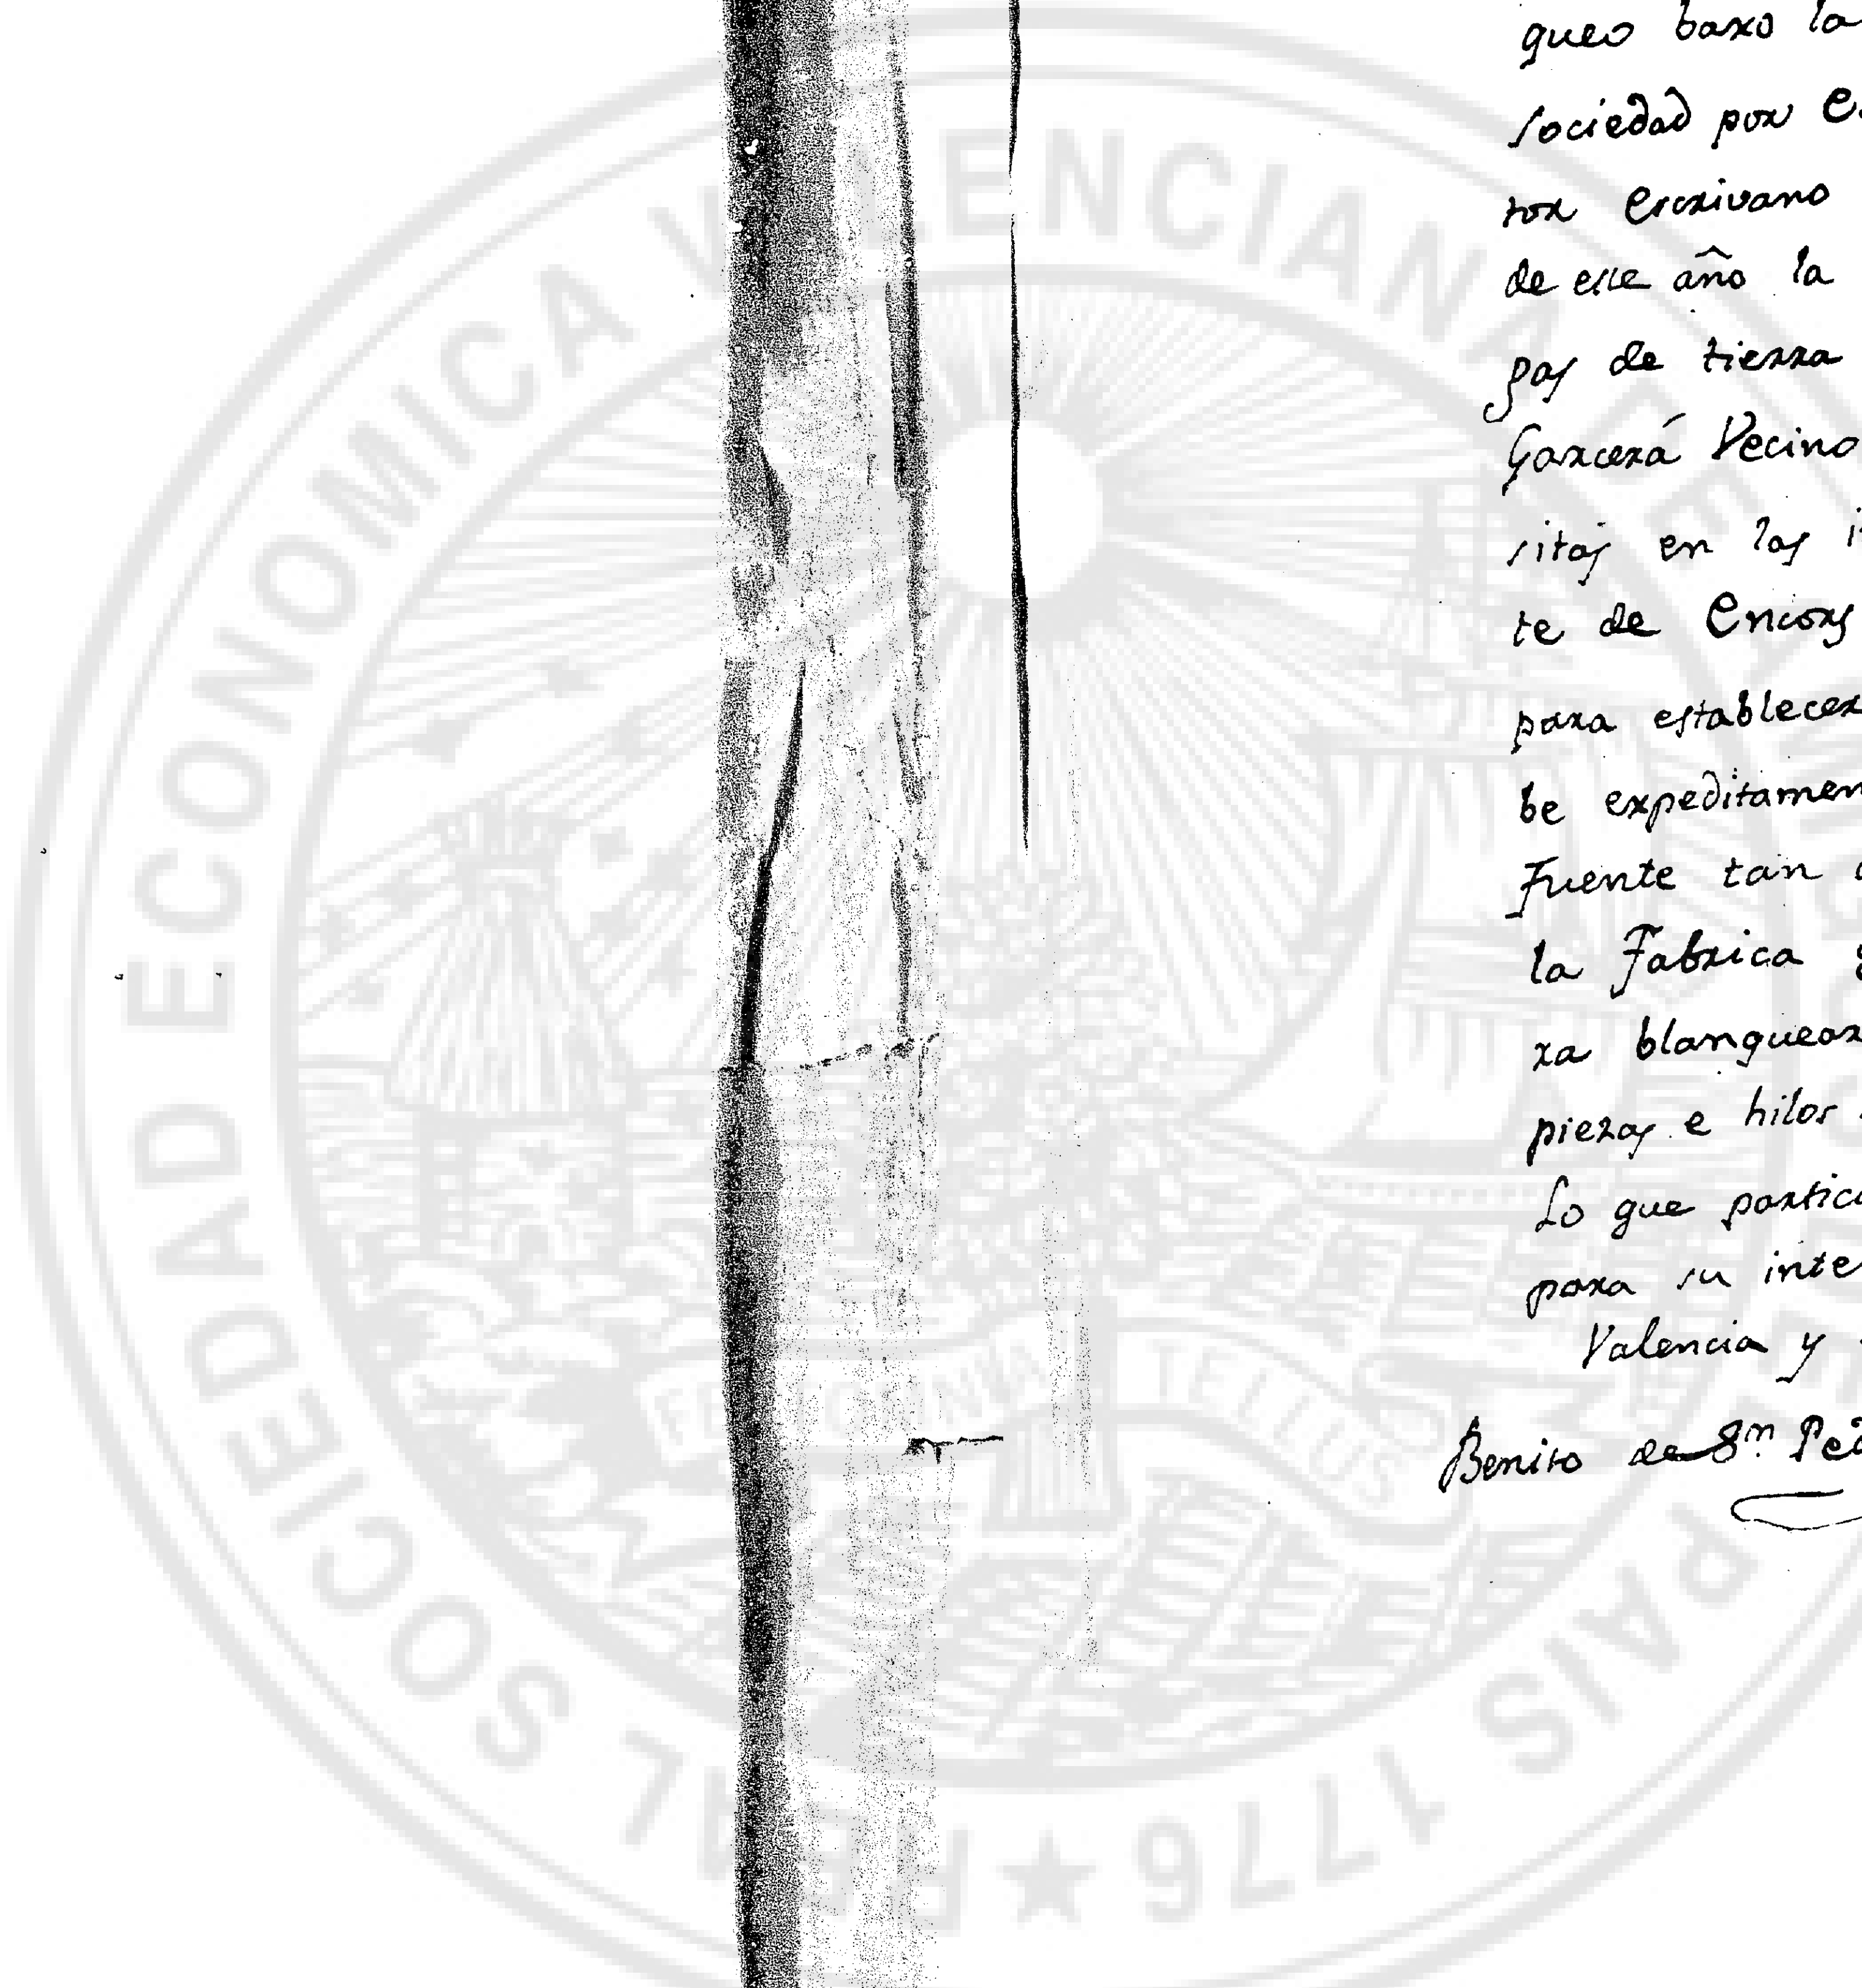 queo baxo la
sociedad por
tor escrivano
de este año la
gas de tierra
Garcerá Vecino
sitas en las
te de Encors
para establecer
be expeditamen
Fuente tan
la Fabrica
ra blanquear
piezas e hilos
Lo que partic
para su inte
Valencia y
Benito de Sn. Ped
REAL SOCIEDAD ECONOMICA VALENCIANA
PAIS 1776